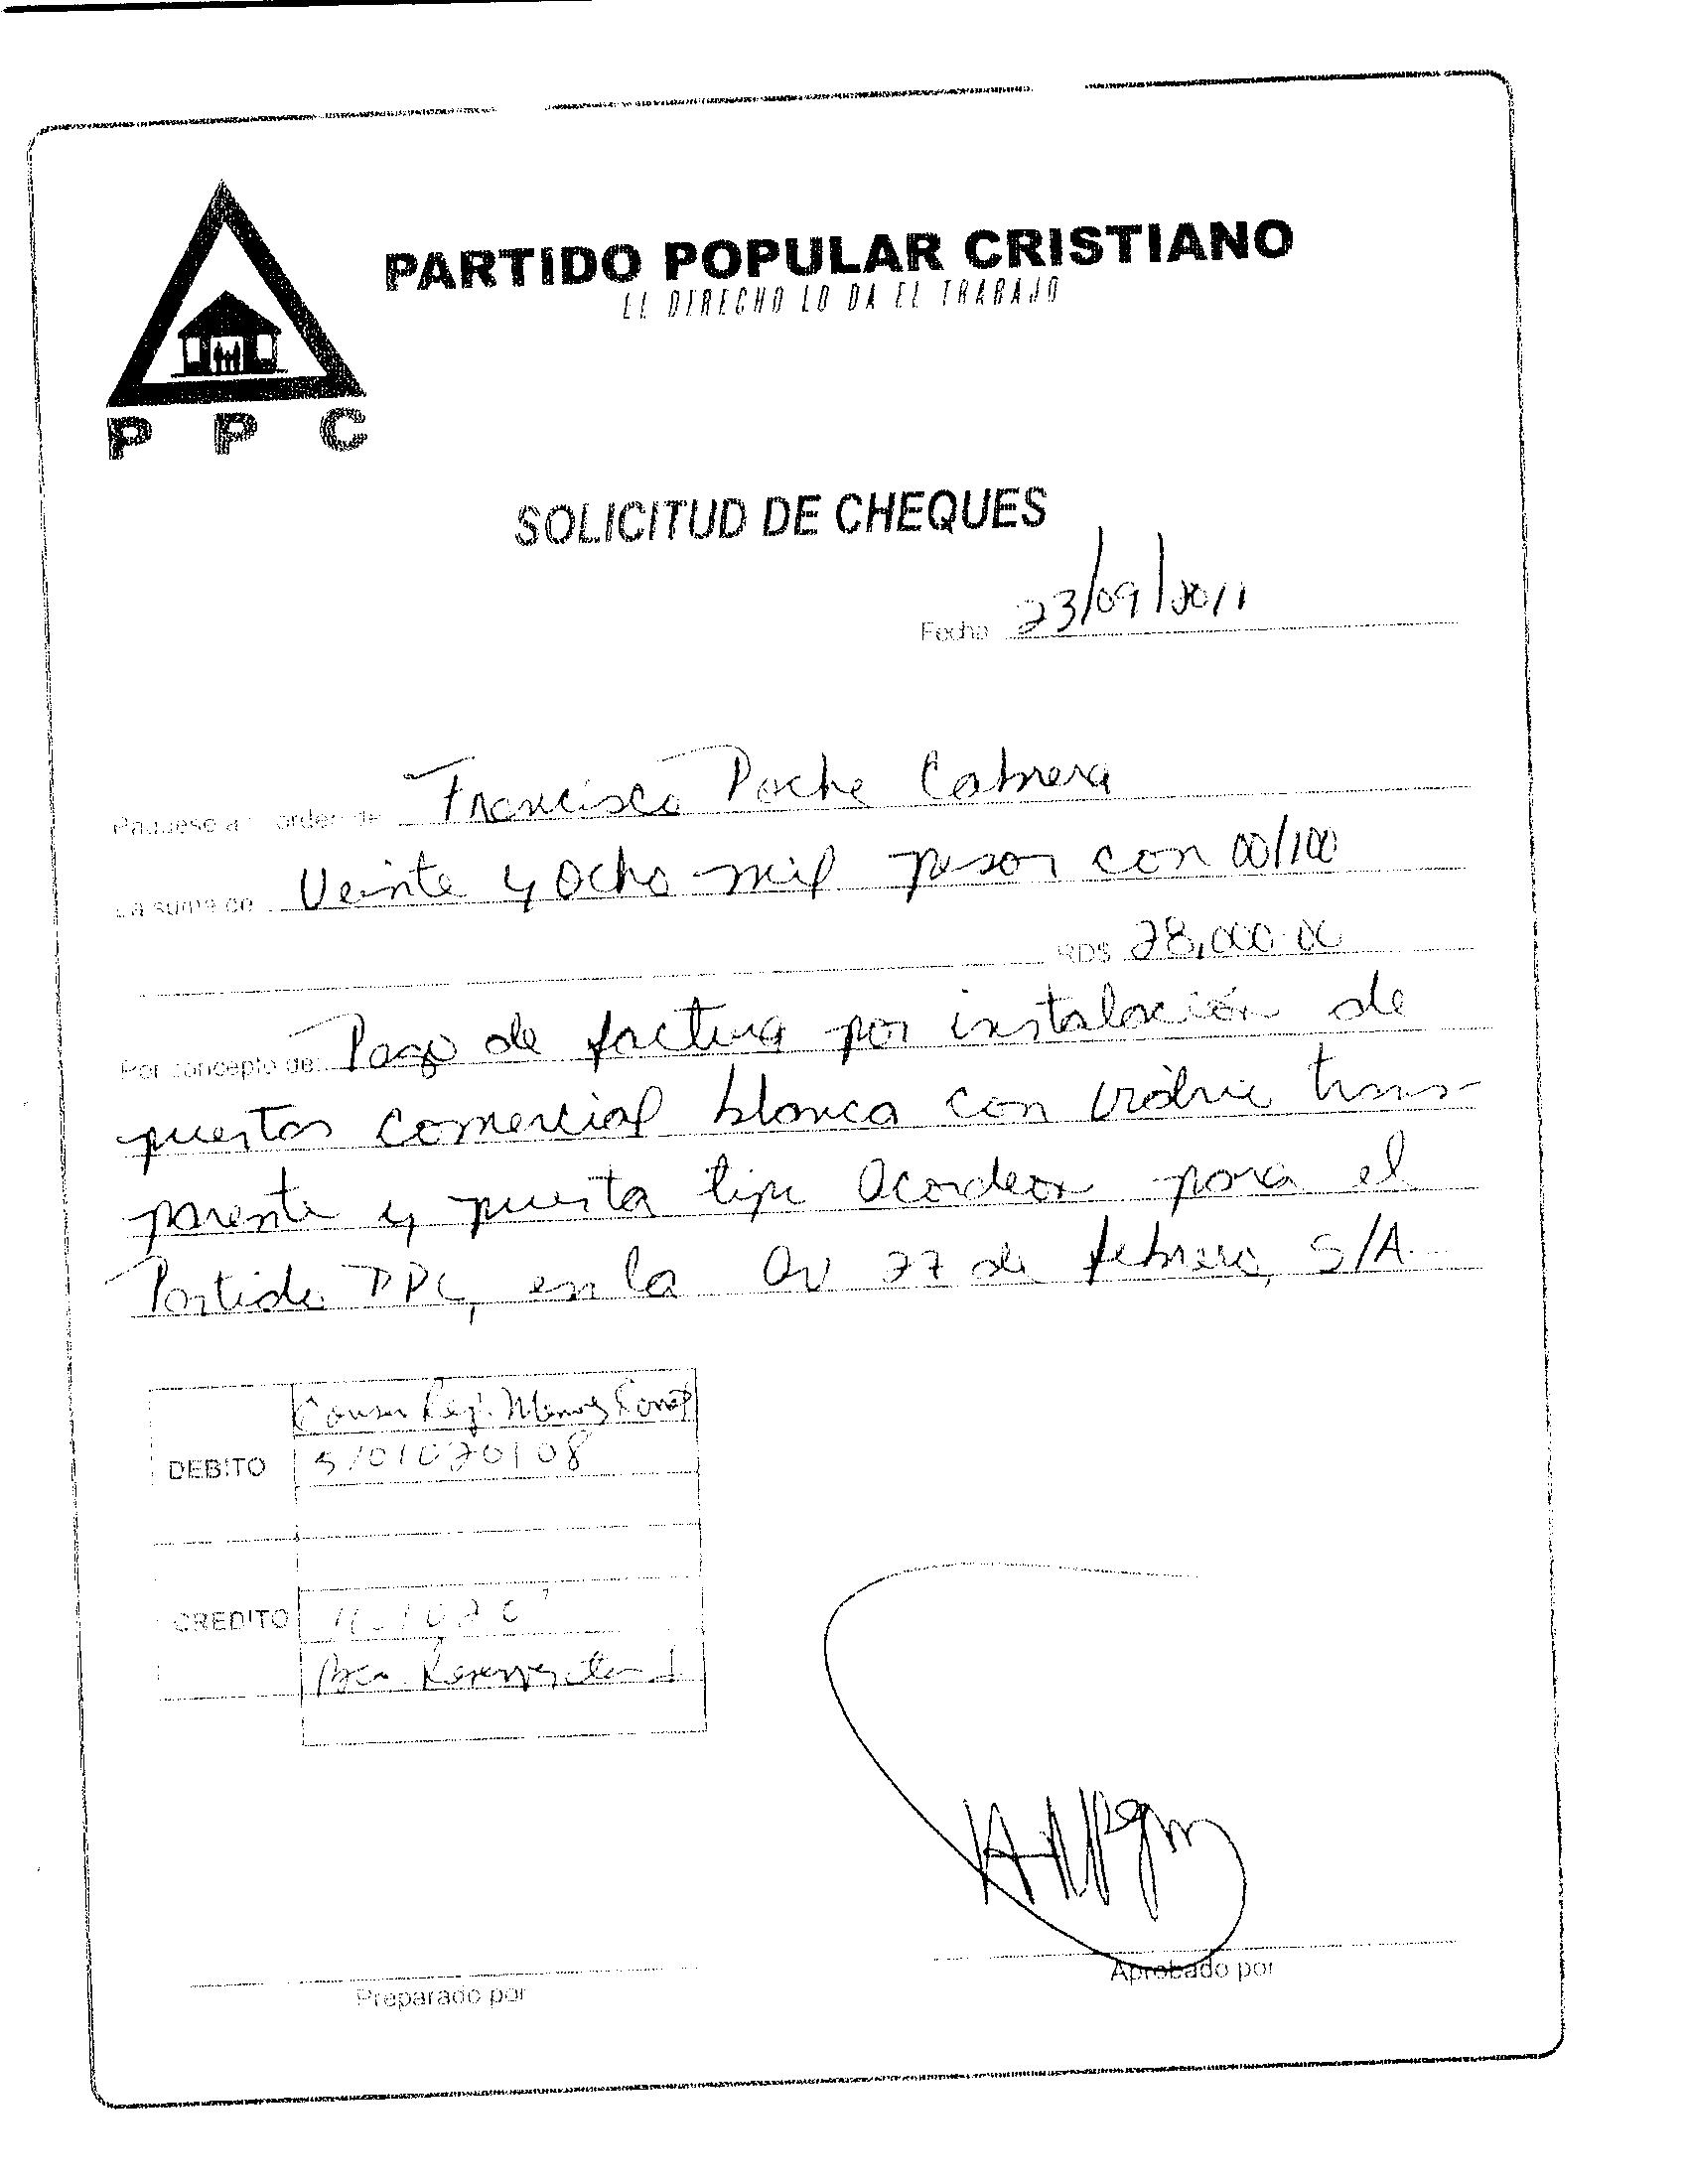 PARTIDO POPULAR CRISTIANO
EL DERECHO LO DA EL TRABAJO
P P C
SOLICITUD DE CHEQUES
Fecha 23/09/2011
Páguese a orden de Francisco Poche Cabrera
La suma de Veinte y Ocho mil pesos con 00/100
RD$ 28,000.00
Por concepto de: Pago de factura por instalación de
puertas comercial blanca con vidrio trans-
parente y puerta tipo Acordeon para el
Partido PPC, en la Av 27 de febrero, S/A
DEBITO 5101020108
CREDITO
Preparado por
Aprobado por